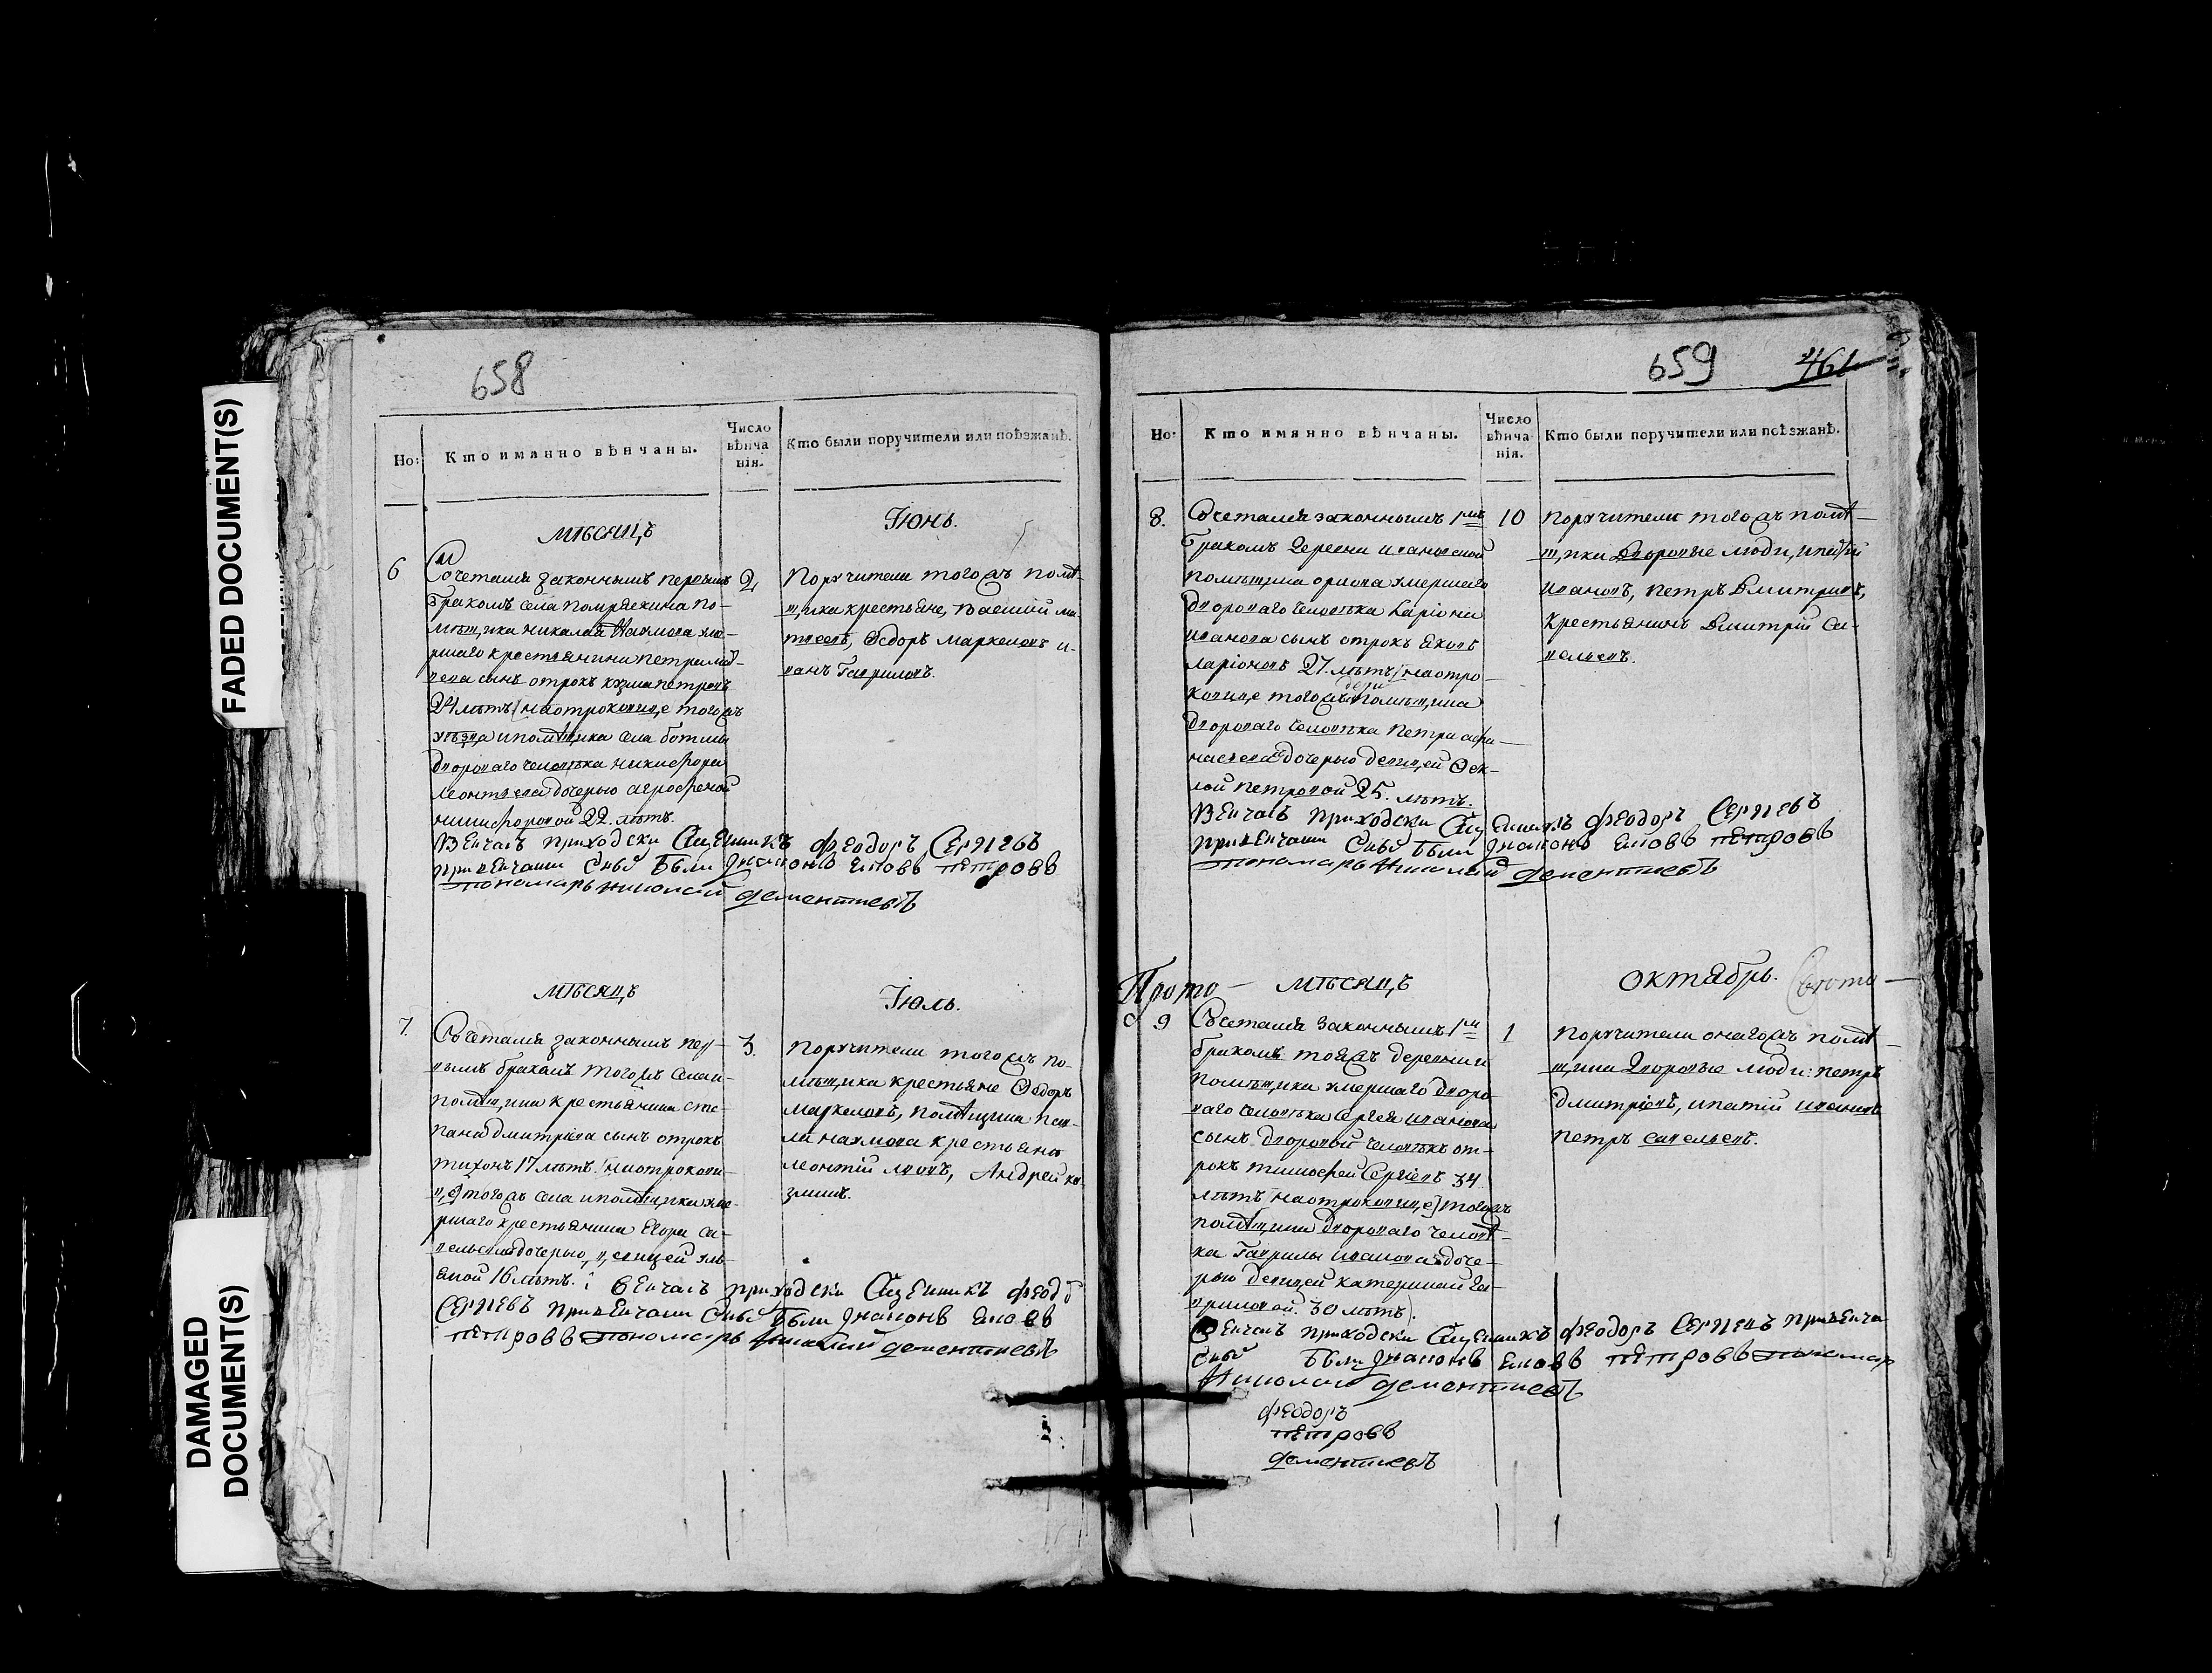 FADED DOCUMENT(S)
DAMAGED DOCUMENT(S)
658
Но:
Кто имянно вѣнчаны.
Число вѣнча нія.
Кто были поручители или поѣзжанѣ.
мѣсяцъ
Іюнь.
6
Сочетался законнымъ первымъ
бракомъ села
мѣщика николая Наумова уме-
ршаго крестьянина петра
сынъ отрокъ кузма петровъ
24 лѣтъ наотроковице тогожъ
уѣзда ипомѣщика села
двороваго человѣка никифора
леонтьева дочерью агрофеной
никифоровой 22. лѣтъ.
2
Поручители тогожъ помѣ-
щика крестьяне,
Ѳедоръ маркеловъ и-
ванъ Гавриловъ.
Венчалъ приходски Сщенникъ феодоръ Сергиевъ
привенчании Сивъ были дьяконъ петровъ
пономарь николай дементиевъ
мѣсяцъ
Іюль.
7.
Сочетался законнымъ пер-
вымъ бракомъ тогожъ села и
помѣщика крестьянина сте-
пана дмитріева сынъ отрокъ
тихонъ 17 лѣтъ. наотрокови-
це тогожъ села ипомѣщика уме-
ршаго крестьянина Егора са-
вельева дочерью, девицей уль-
яной 16 лѣтъ.
3.
поручители тогожъ по-
мѣщика крестьяне Ѳедоръ
маркеловъ, помѣщика пав-
ла наумова крестьяне
леонтій Андрей ку-
зминъ.
венчалъ приходски Сщенникъ феодоръ
Сергиевъ привенчании Сивъ были дьяконъ
петровъ пономарь николай дементиевъ
659
461
Но:
Кто имянно вѣнчаны.
Число вѣнча нія.
Кто были поручители или поѣзжанѣ.
8.
Сочетался законнымъ 1мъ
бракомъ деревни ивановской
помѣщика умершаго
двороваго человѣка Ларіона
иванова сынъ отрокъ яковъ
ларіоновъ 27. лѣтъ наотро-
ковице тогожъ помѣщика
двороваго человѣка петра афа-
насьева дочерью девицей Ѳек-
лой петровой 25. лѣтъ.
10
поручители тогожъ помѣ-
щика дворовые люди, ипатій
ивановъ, петръ дмитріевъ,
крестьянинъ дмитрій са-
вельевъ.
Венчалъ приходски Сщенникъ феодоръ Сергиевъ
привенчании Сивъ были дьяконъ петровъ
пономарь николай дементиевъ
Прото
мѣсяцъ
октябрь.
9
Сочетался законнымъ 1мъ
бракомъ тояжъ деревни и
помѣщика умершаго дворо-
ваго человѣка Сергея иванова
сынъ дворовый человѣкъ от-
рокъ тимофей Сергіевъ 34
лѣтъ наотроковице тогожъ
помѣщика двороваго человѣ-
ка Гаврилы иванова доче-
рью девицей катериной Га-
вриловой. 30 лѣтъ.
1
поручители онагожъ помѣ-
щика дворовые люди: петръ
дмитріевъ, ипатій ивановъ
петръ савельевъ.
Венчалъ приходски Сщенникъ феодоръ Сергиевъ привенча
Сивъ были дьяконъ петровъ пономарь
Николай дементиевъ
феодоръ
петровъ
дементиевъ